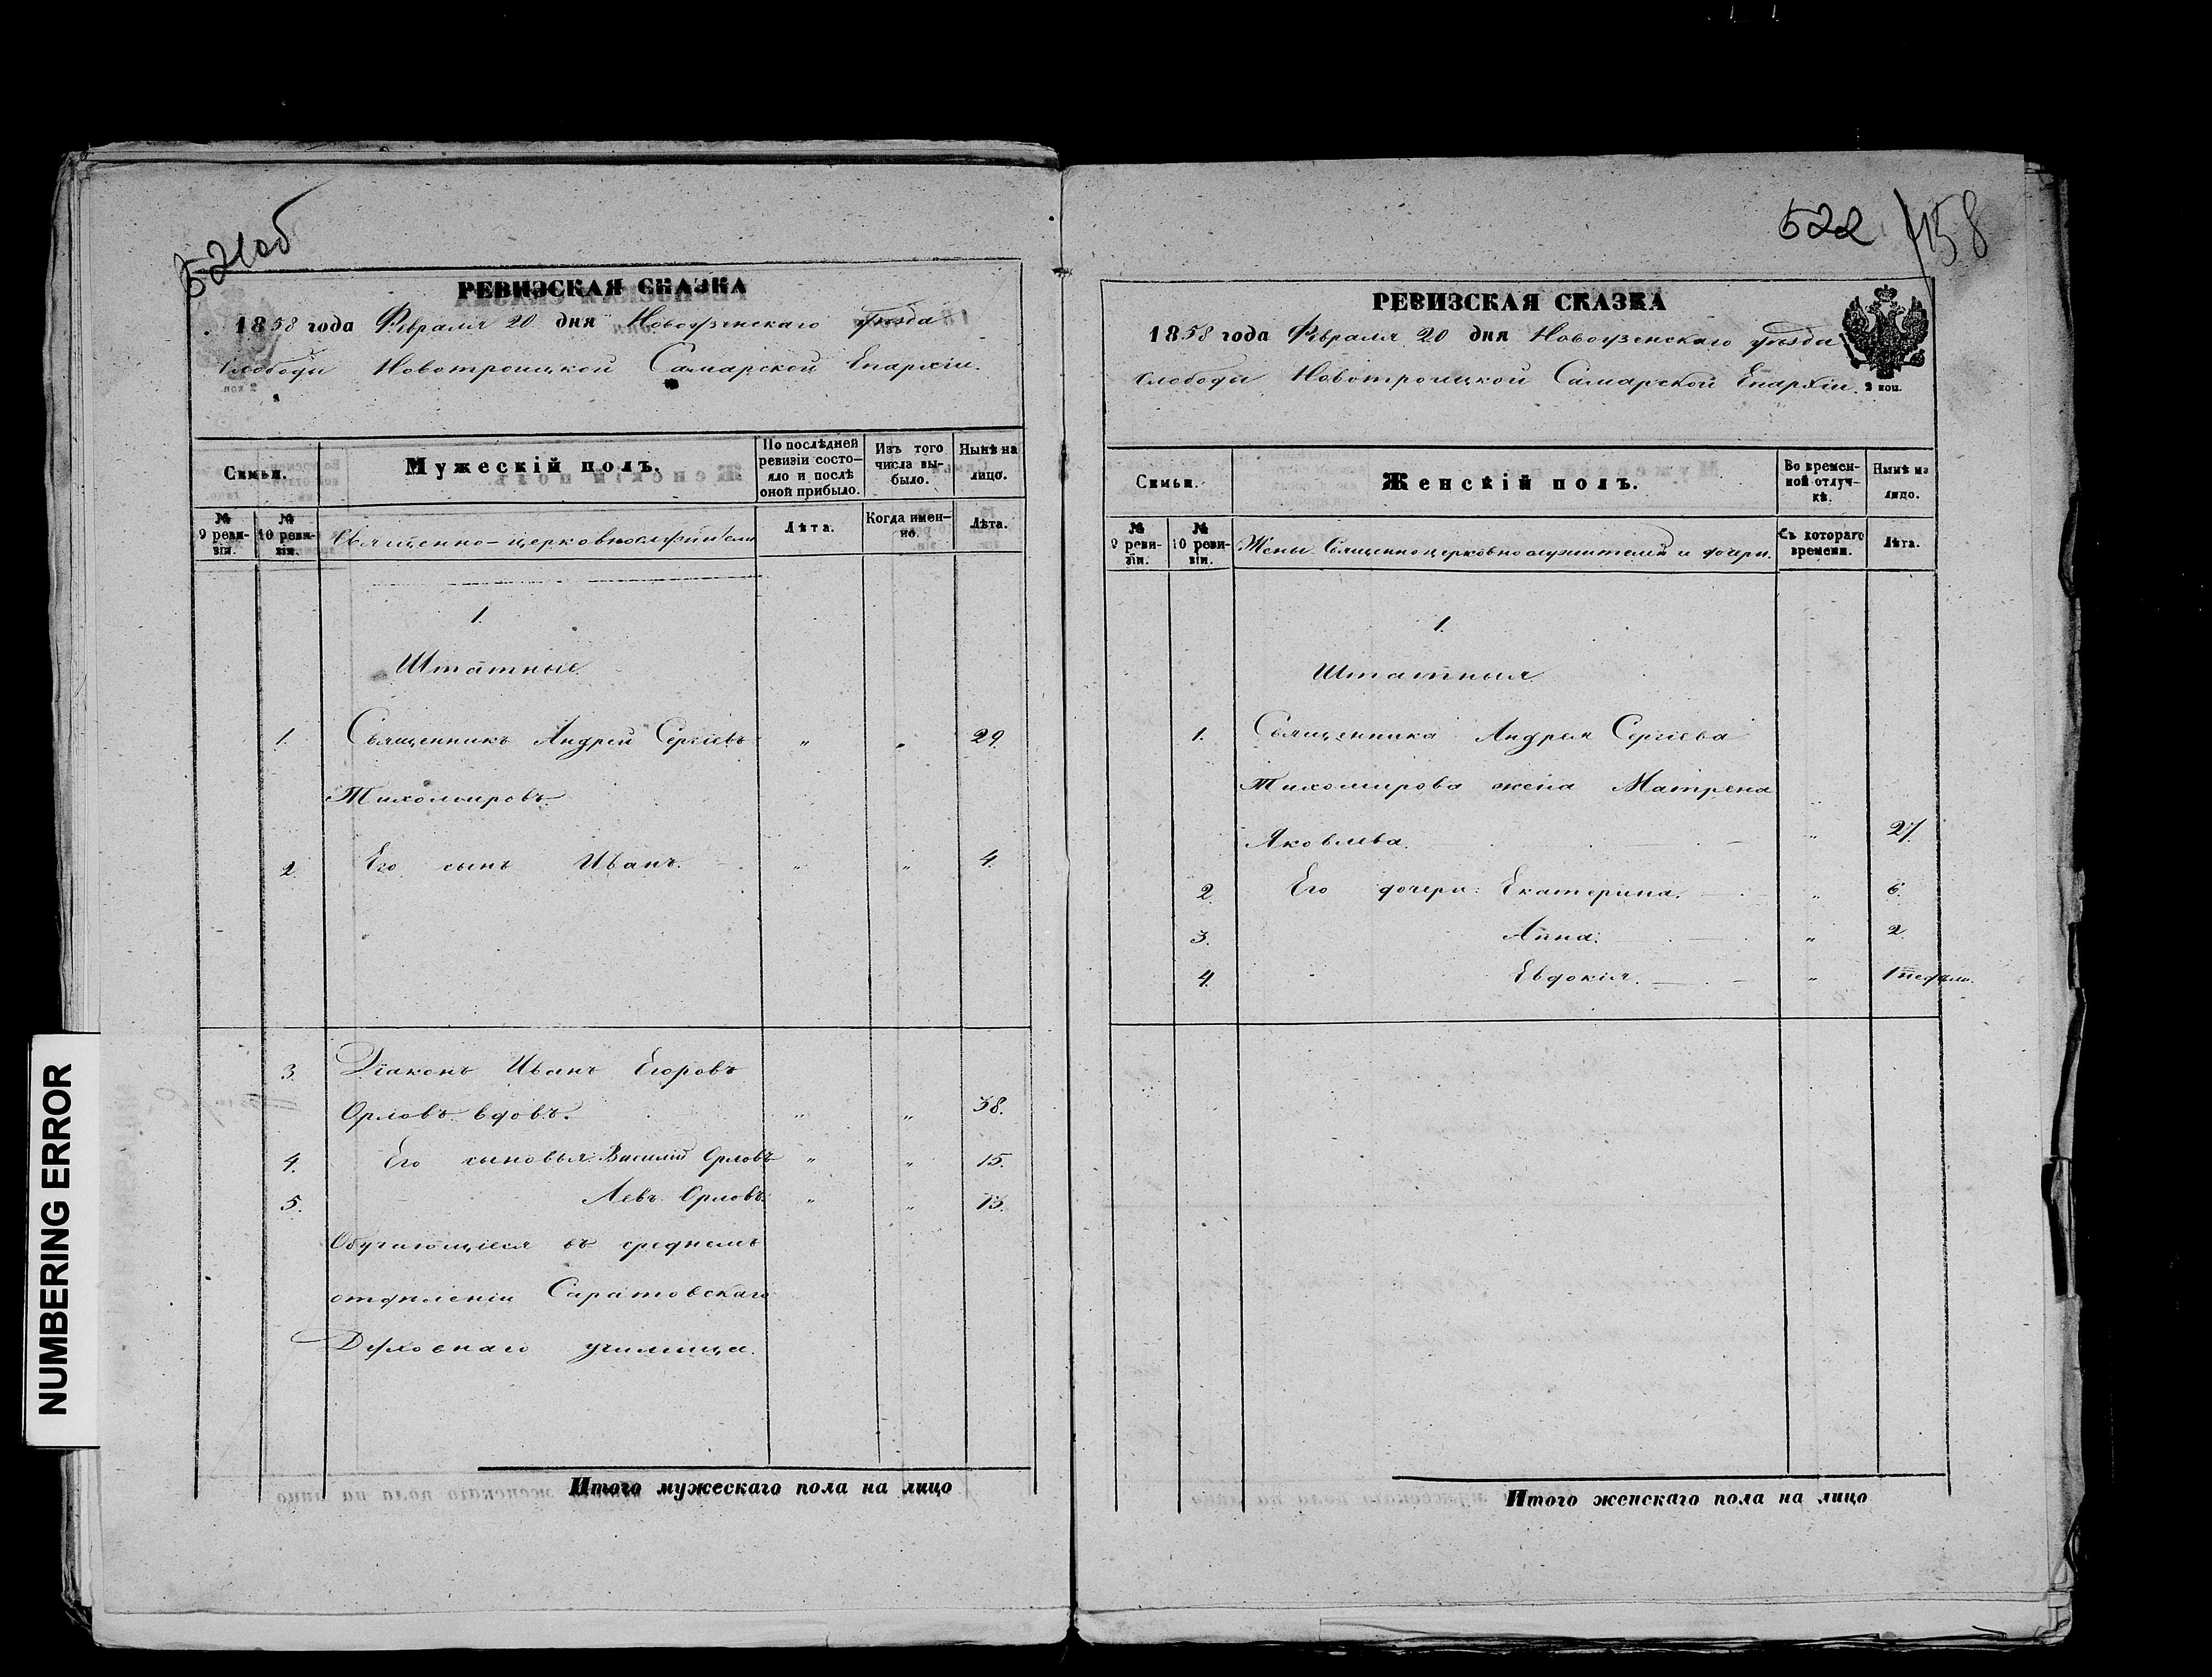 521об
РЕВИЗСКАЯ СКАЗКА
1858 года Февраля 20 дня Новоузенскаго уѣзда
Слободы Новотроицкой Самарской Епархіи.
Семьи.
Мужескій полъ.
По послѣдней ревизіи состояло и послѣ оной прибыло.
Изъ того числа выбыло.
Нынѣ на лицо.
№ 9 ревизіи.
№ 10 ревизіи.
Священно-церковнослужители
Лѣта.
Когда именно.
Лѣта.
1.
Штатные.
1. Священникъ Андрей Сергіевъ „ „ 29.
Тихомировъ.
2. Его сынъ Иванъ. „ „ 4.
3. Діаконъ Иванъ Егоровъ
Орловъ вдовъ. „ „ 38.
4. Его сыновья: Василій Орловъ „ „ 15.
5. Левъ Орловъ. „ „ 13.
Обучающіеся въ среднемъ
отдѣленіи Саратовскаго
Духовнаго училища.
Итого мужескаго пола на лицо
NUMBERING ERROR
522 158
РЕВИЗСКАЯ СКАЗКА
1858 года Февраля 20 дня Новоузенскаго уѣзда
Слободы Новотроицкой Самарской Епархіи.
2 коп.
Семьи.
Женскій полъ.
Во временной отлучкѣ.
Нынѣ на лицо.
№ 9 ревизіи.
№ 10 ревизіи.
Жены Священноцерковнослужителей и дочери.
Съ котораго времени.
Лѣта.
1.
Штатныя
1. Священника Андрея Сергіева
Тихомирова жена Матрена
Яковлева. „ 27.
2. Его дочери: Екатерина. „ 6.
3. Анна. „ 2.
4. Евдокія. „ 1 недѣли.
Итого женскаго пола на лицо